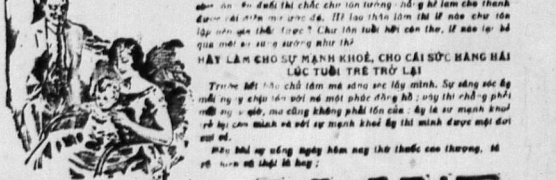 đuổi thì chắc chư tôn tưởng chẳng hề làm cho thành
được cái điều mơ ước đó. Hễ lao thân làm thì lẽ nào chư tôn
lập nên gia thất được? Chư tôn tuổi hãy còn thơ, lẽ nào lại bỏ
qua một sự sung sướng như thế
HÃY LÀM CHO SỰ MẠNH KHOẺ, CHO CÁI SỨC HĂNG HÁI
LÚC TUỔI TRẺ TRỞ LẠI
Trước hết hãy chú tâm mà săng sóc lấy mình. Sự săng sóc ấy
mỗi ngày chịu tốn với nó một phúc đồng hồ; vậy thì chẳng phải
mỗi giờ, mà cũng không phải tốn của: ấy là sự mạnh khoẻ
trở lại cho mình và với sự mạnh khoẻ ấy thì mình được một đời
vui vẻ.
hãy uống ngày hôm nay thờ thuốc cao thượng, tê
thật là hay;